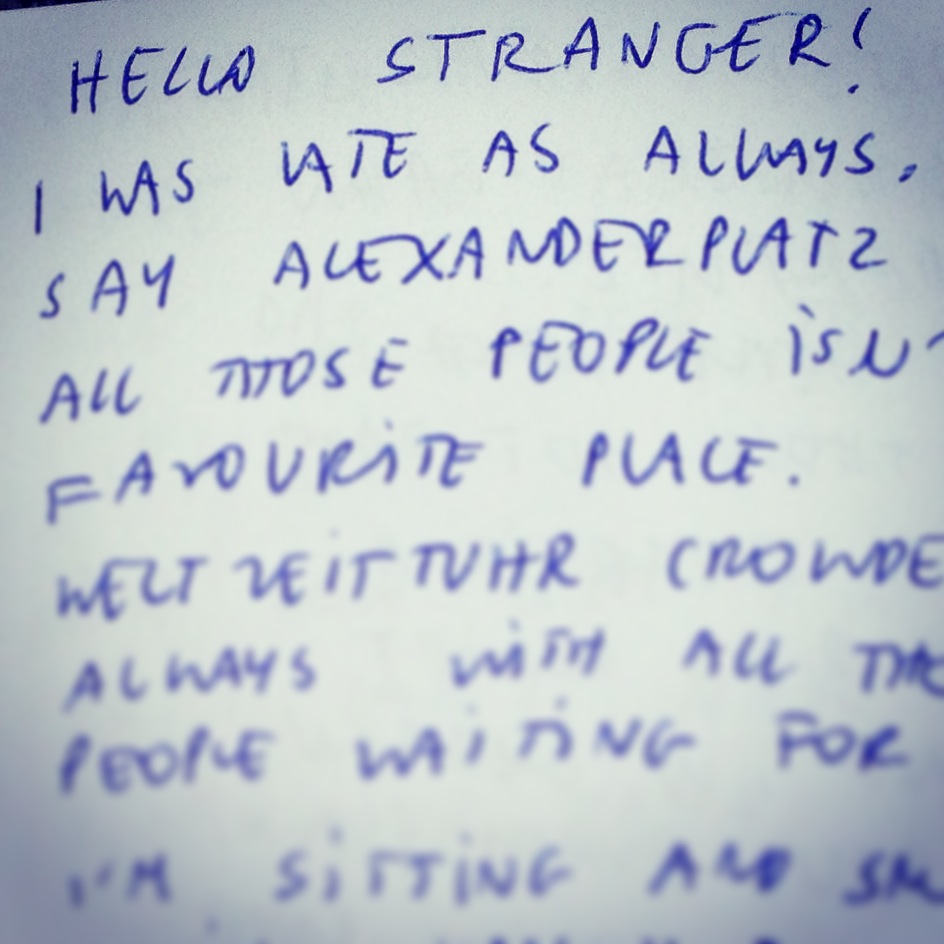 HELLO STRANGER!
I WAS LATE AS ALWAYS.
SAY ALEXANDERPLATZ
ALL THOSE PEOPLE ISN'
FAVOURITE PLACE.
WELTZEITTUHR CROWDE
ALWAYS WITH ALL THO
PEOPLE WAITING FOR
I'M SITTING AND SM